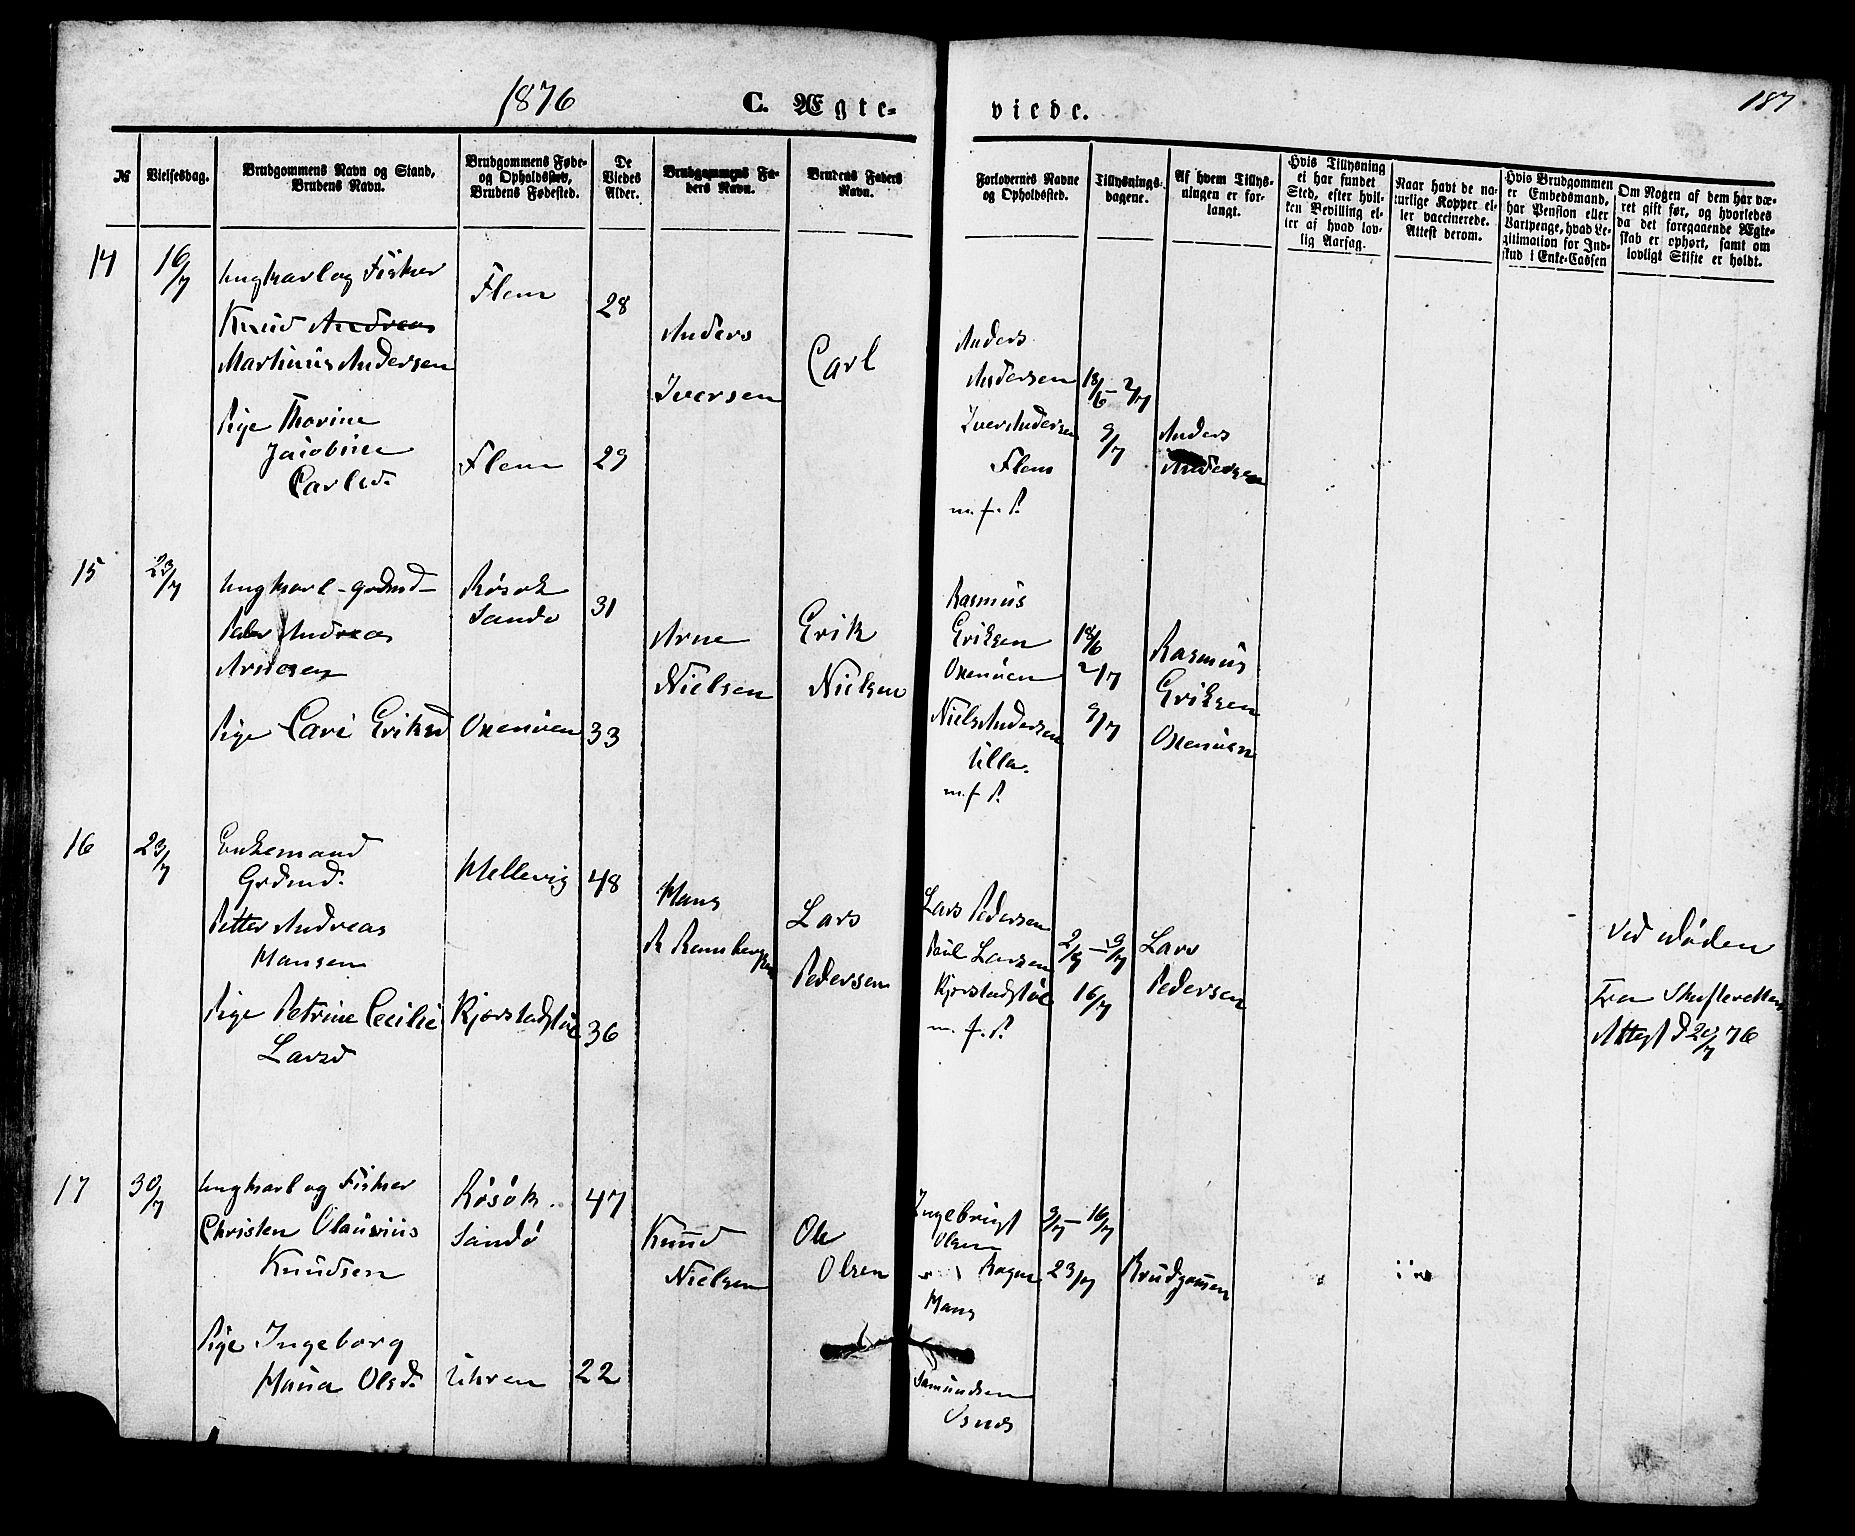 1876
C. Ægteviede.
187
№
Vielsesdag.
Brudgommens Navn og Stand,
Brudens Navn.
Brudgommens Føde-
og Opholdssted,
Brudens Fødested.
De
Viedes
Alder.
Brudgommens Fa-
ders Navn.
Brudens Faders
Navn.
Forlovernes Navne
og Opholdssted.
Tillysnings-
dagene.
Af hvem Tillys-
ningen er for-
langt.
Hvis Tillysning
ei har fundet
Sted, efter hvil-
ken Bevilling el-
ler af hvad lov-
lig Aarsag.
Naar havt de na-
turlige Kopper el-
ler vaccinerede.
Attest derom.
Hvis Brudgommen
er Embedsmand,
har Pension eller
Vartpenge, hvad Le-
gitimation for Ind-
skud i Enke-Cassen
Om Nogen af dem har væ-
ret gift før, og hvorledes
da det foregaaende Ægte-
skab er ophørt, samt om
lovligt Skifte er holdt.
14
16/7
Ungkarl og Fisker
Knud Andreas
Martinus Andersen
Pige Thorine
Jacobine
Carlsd.
Flem
Flem
28
29
Anders
Iversen
Carl
Anders
Andersen
Iver Andersen
Flem
m. f. P.
18/6 - 2/7
9/7
Anders
Andersen
15
23/7
Ungkarl - grdmd -
Peder Andreas
Arnesen
Pige Cari Eriksd
Røsok
Sandø
Oxenøen
31
33
Arne
Nielsen
Erik
Nielsen
Rasmus
Eriksen
Oxenøen
Niels Andersen
Ulla.
m. f. P.
18/6
2/7
9/7
Rasmus
Eriksen
Oxenøen
16
23/7
Enkemand
Grdmd.
Petter Andreas
Hansen
Pige Petrine Cecilie
Larsd
Mellevig
Kjørstadstøl
48
36
Hans
Lars
Pedersen
Lars Pedersen
Paul Larsen
Kjørstadstøl
m. f. P.
2/7 - 9/7
16/7
Lars
Pedersen
Ved Døden
Fra Skifteretten
Attest d 20/7 76
17
30/7
Ungkarl og Fisker
Christen Olausius
Knudsen
Pige Ingeborg
Hana Olsd.
Røsok.
Sandø
Uhren
47
22
Knud
Nielsen
Ole
Olsen
Ingebrigt
Olsen
Rogne
Hans
Samundsen
Osnes
9/7 - 16/7
23/7
Brudgommen